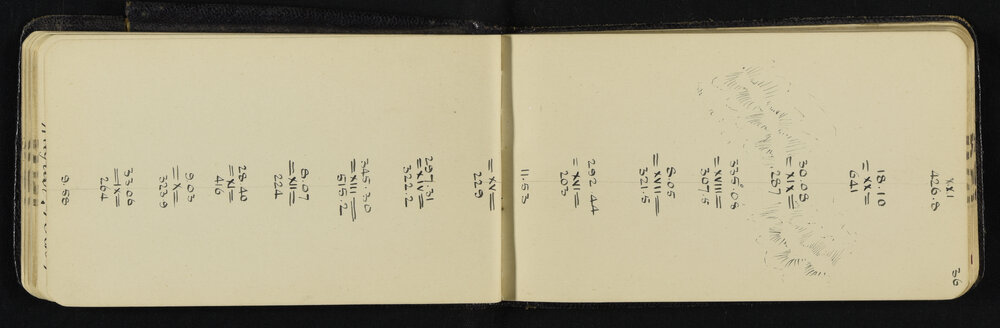 36
XXI
426.8
18.10
=XX=
641
30.08
=XIX=
287
335°08
=XVIII=
307.5
8.05
=XVII=
321.5
292.44
=XVI=
203
11.53
=XV=
229
297.31
=XIV=
322.2
345.30
=XIII=
515.2
8.07
=XII=
224
28.40
=XI=
416
9.03
=X=
323.9
33.06
=IX=
264
9.58